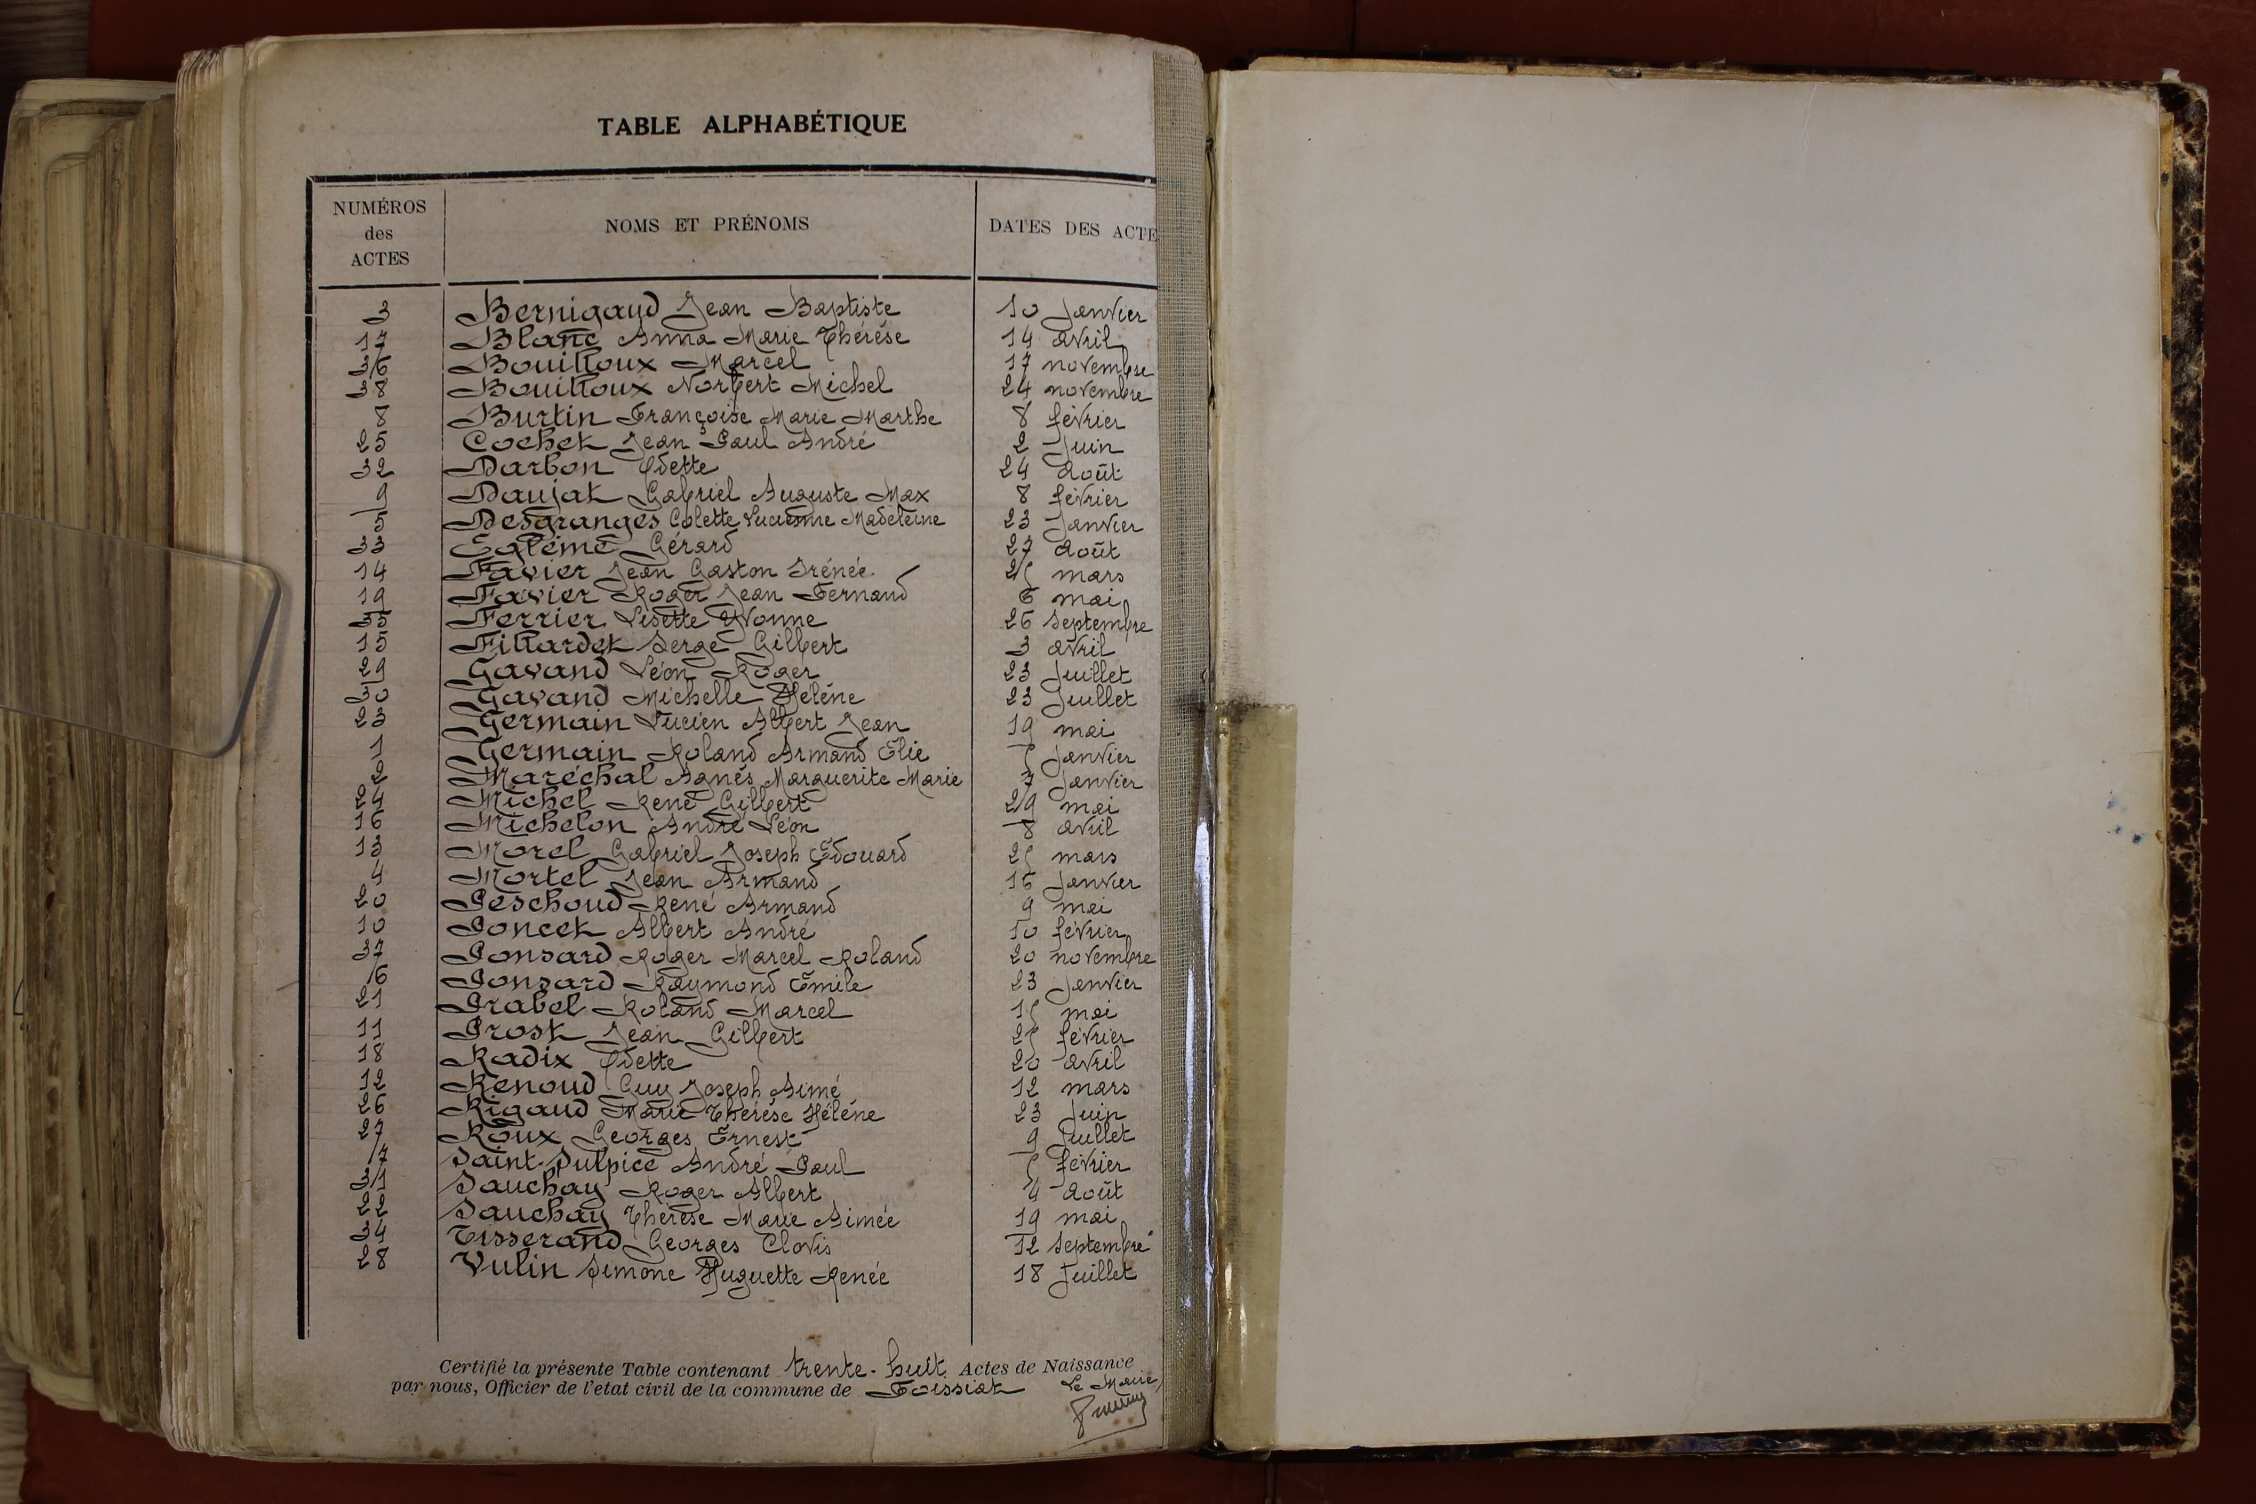 TABLE ALPHABÉTIQUE
NUMÉROS des ACTES NOMS ET PRÉNOMS DATES DES ACTE
3 Bernigaud Jean Baptiste 10 Janvier
17 Blanc Anna Marie Thérèse 14 avril
36 Bouilloux Marcel 17 novembre
38 Bouilloux Norbert Michel 24 novembre
8 Burtin Françoise Marie Marthe 8 février
25 Cochet Jean Paul André 2 Juin
32 Darbon Odette 24 Août
9 Daujat Gabriel Auguste Max 8 février
5 Desgranges Colette Lucienne Madeleine 23 Janvier
33 Egléme Gérard 27 Août
14 Favier Jean Gaston Irénée 25 mars
19 Favier Roger Jean Fernand 6 mai
35 Ferrier Lisette Yvonne 26 Septembre
15 Fillardet Serge Gilbert 3 avril
29 Gavand Léon Roger 23 Juillet
30 Gavand Michelle Hélène 23 Juillet
23 Germain Lucien Albert Jean 19 mai
1 Germain Roland Armand Elie 5 Janvier
2 Maréchal Agnès Marguerite Marie 7 Janvier
24 Michel René Gilbert 29 mai
16 Michelon André Léon 8 avril
13 Morel Gabriel Joseph Edouard 25 mars
4 Mortel Jean Armand 16 Janvier
20 Peschoud René Armand 9 mai
10 Poncet Albert André 10 février
37 Ponsard Roger Marcel Roland 20 novembre
6 Ponsard Raymond Emile 23 Janvier
21 Prabel Roland Marcel 15 mai
11 Prost Jean Gilbert 25 février
18 Radix Odette 20 avril
12 Renoud Guy Joseph Aimé 12 mars
26 Rigaud Marie Thérèse Hélène 23 Juin
27 Roux Georges Ernest 9 Juillet
7 Saint-Sulpice André Paul 5 février
31 Sauchay Roger Albert 4 Août
22 Sauchay Thérèse Marie Aimée 19 mai
34 Tisserand Georges Clovis 12 Septembre
28 Vulin Simone Huguette Renée 18 Juillet
Certifié la présente Table contenant trente-huit Actes de Naissance
par nous, Officier de l'etat civil de la commune de Foissiat Le Maire,